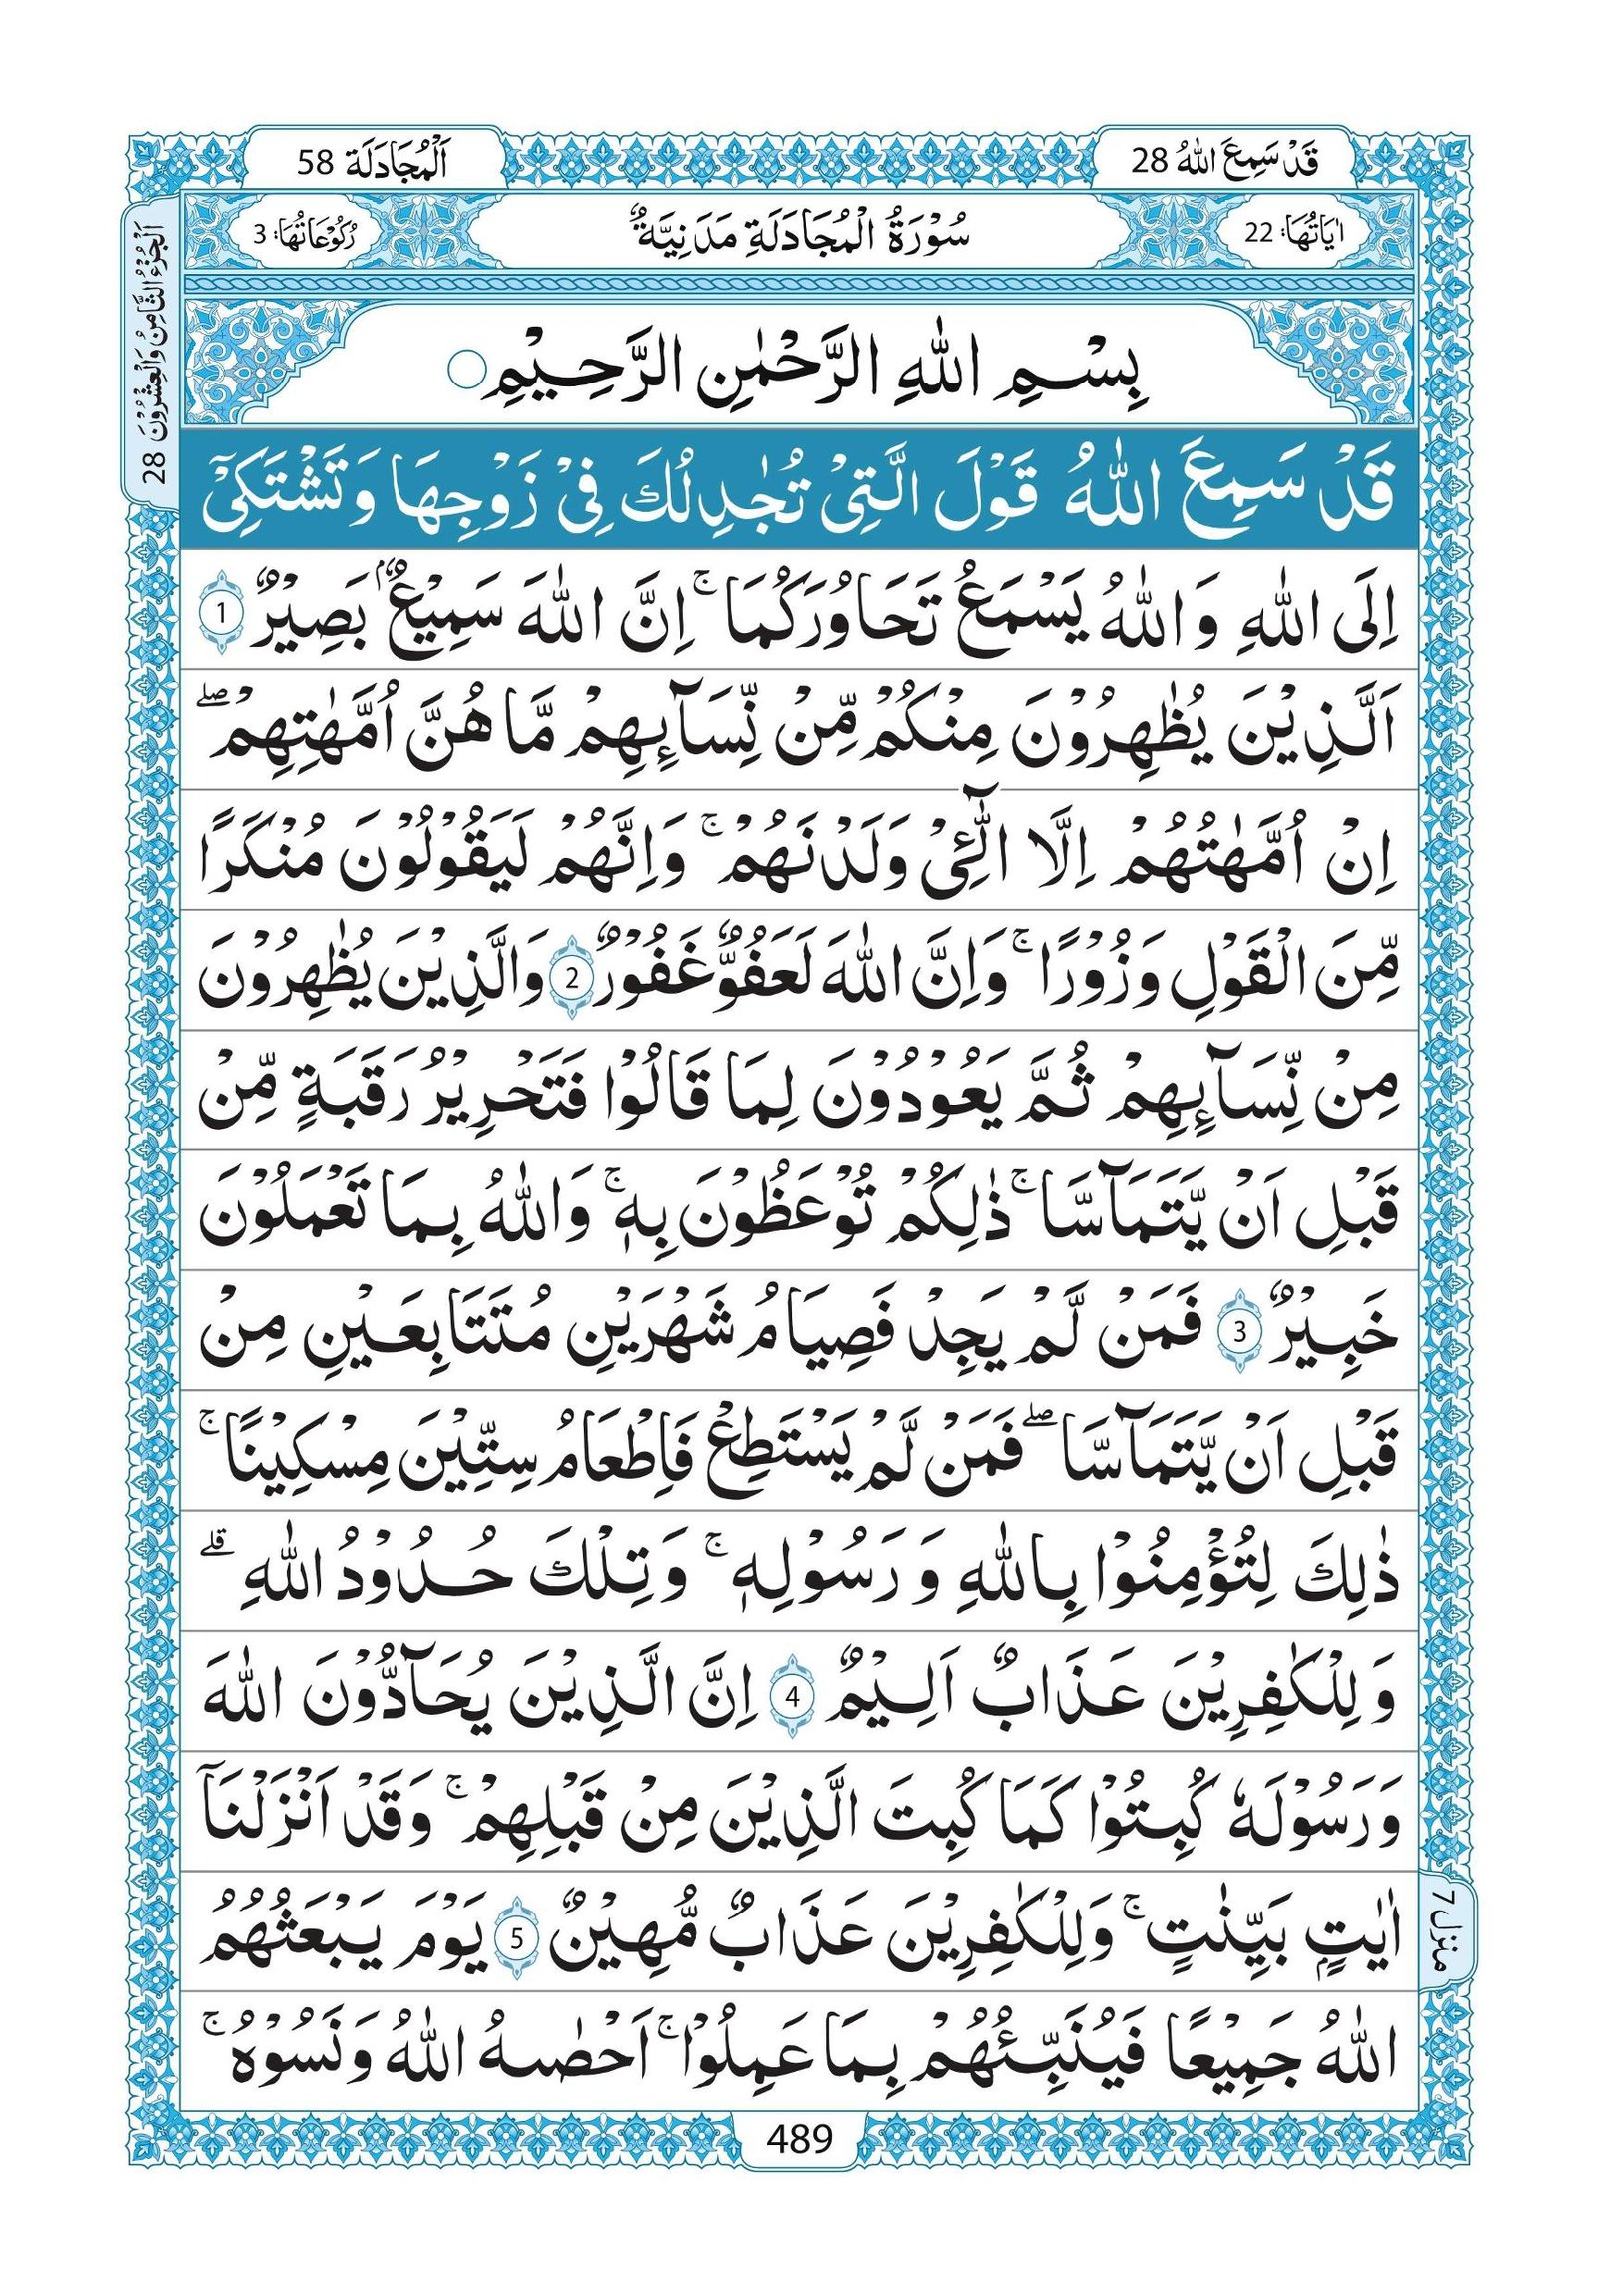 قَدْ سَمِعَ اللّٰهُ 28
اَلْمُجَادَلَة 58
اٰيَاتُهَا: 22
سُوْرَةُ الْمُجَادَلَةِ مَدَنِيَّةٌ
رُكُوْعَاتُهَا: 3
اَلْجُزْءُ الثَّامِنُ وَالْعِشْرُوْنَ 28
بِسْمِ اللّٰهِ الرَّحْمٰنِ الرَّحِيْمِ
قَدْ سَمِعَ اللّٰهُ قَوْلَ الَّتِیْ تُجٰدِلُكَ فِیْ زَوْجِهَا وَتَشْتَكِیْۤ
اِلَی اللّٰهِ وَاللّٰهُ یَسْمَعُ تَحَاوُرَكُمَا ۚ اِنَّ اللّٰهَ سَمِیْعٌۢ بَصِیْرٌ 1
اَلَّذِیْنَ یُظٰهِرُوْنَ مِنْكُمْ مِّنْ نِّسَآىِٕهِمْ مَّا هُنَّ اُمَّهٰتِهِمْ ۖ
اِنْ اُمَّهٰتُهُمْ اِلَّا الّٰٓـِٔیْ وَلَدْنَهُمْ ۚ وَاِنَّهُمْ لَیَقُوْلُوْنَ مُنْكَرًا
مِّنَ الْقَوْلِ وَزُوْرًا ۚ وَاِنَّ اللّٰهَ لَعَفُوٌّ غَفُوْرٌ 2 وَالَّذِیْنَ یُظٰهِرُوْنَ
مِنْ نِّسَآىِٕهِمْ ثُمَّ یَعُوْدُوْنَ لِمَا قَالُوْا فَتَحْرِیْرُ رَقَبَةٍ مِّنْ
قَبْلِ اَنْ یَّتَمَآسَّا ۚ ذٰلِكُمْ تُوْعَظُوْنَ بِهٖ ۚ وَاللّٰهُ بِمَا تَعْمَلُوْنَ
خَبِیْرٌ 3 فَمَنْ لَّمْ یَجِدْ فَصِیَامُ شَهْرَیْنِ مُتَتَابِعَیْنِ مِنْ
قَبْلِ اَنْ یَّتَمَآسَّا ۖ فَمَنْ لَّمْ یَسْتَطِعْ فَاِطْعَامُ سِتِّیْنَ مِسْكِیْنًا ۚ
ذٰلِكَ لِتُؤْمِنُوْا بِاللّٰهِ وَرَسُوْلِهٖ ۚ وَتِلْكَ حُدُوْدُ اللّٰهِ ۗ
وَلِلْكٰفِرِیْنَ عَذَابٌ اَلِیْمٌ 4 اِنَّ الَّذِیْنَ یُحَآدُّوْنَ اللّٰهَ
وَرَسُوْلَهٗ كُبِتُوْا كَمَا كُبِتَ الَّذِیْنَ مِنْ قَبْلِهِمْ ۚ وَقَدْ اَنْزَلْنَاۤ
اٰیٰتٍۭ بَیِّنٰتٍ ۚ وَلِلْكٰفِرِیْنَ عَذَابٌ مُّهِیْنٌ 5 یَوْمَ یَبْعَثُهُمُ
اللّٰهُ جَمِیْعًا فَیُنَبِّئُهُمْ بِمَا عَمِلُوْا ۚ اَحْصٰىهُ اللّٰهُ وَنَسُوْهُ ۚ
منزل ۷
489